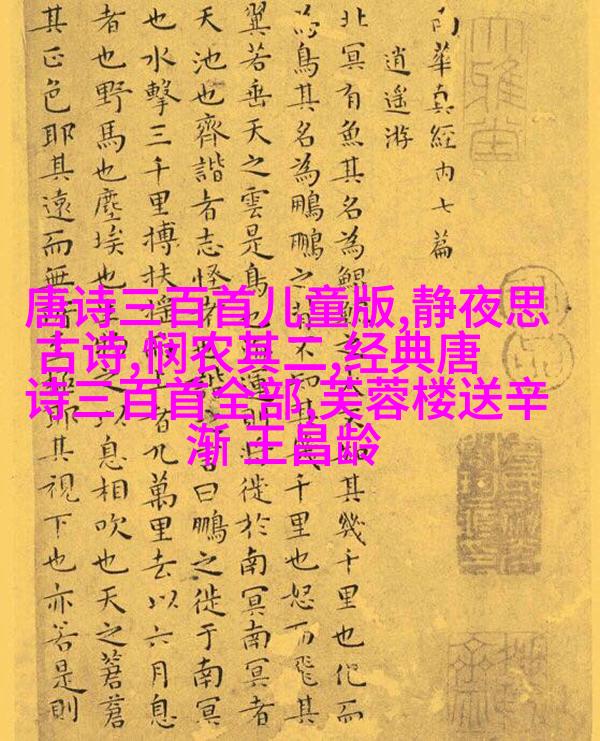 大雅堂
南華真經内七篇
逍遥游
北冥有魚其名為鯤之大不知其幾千里也化而
為鳥其名為鵬鵬之背不知其幾千里也怒而飛其
翼若垂天之雲是鳥也海運則將徙於南冥南冥者
天池也齊諧者志怪者也諧之言曰鵬之徙于南冥
也水擊三千里搏扶摇而上者九萬里去以六月息
者也野馬也塵埃也生物之以息相吹也天之蒼蒼
其正色耶其遠而無所至極耶其視下也亦若是則
唐诗三百首儿童版,静夜思
古诗,悯农其二,经典唐
诗三百首全部,芙蓉楼送辛
渐 王昌龄